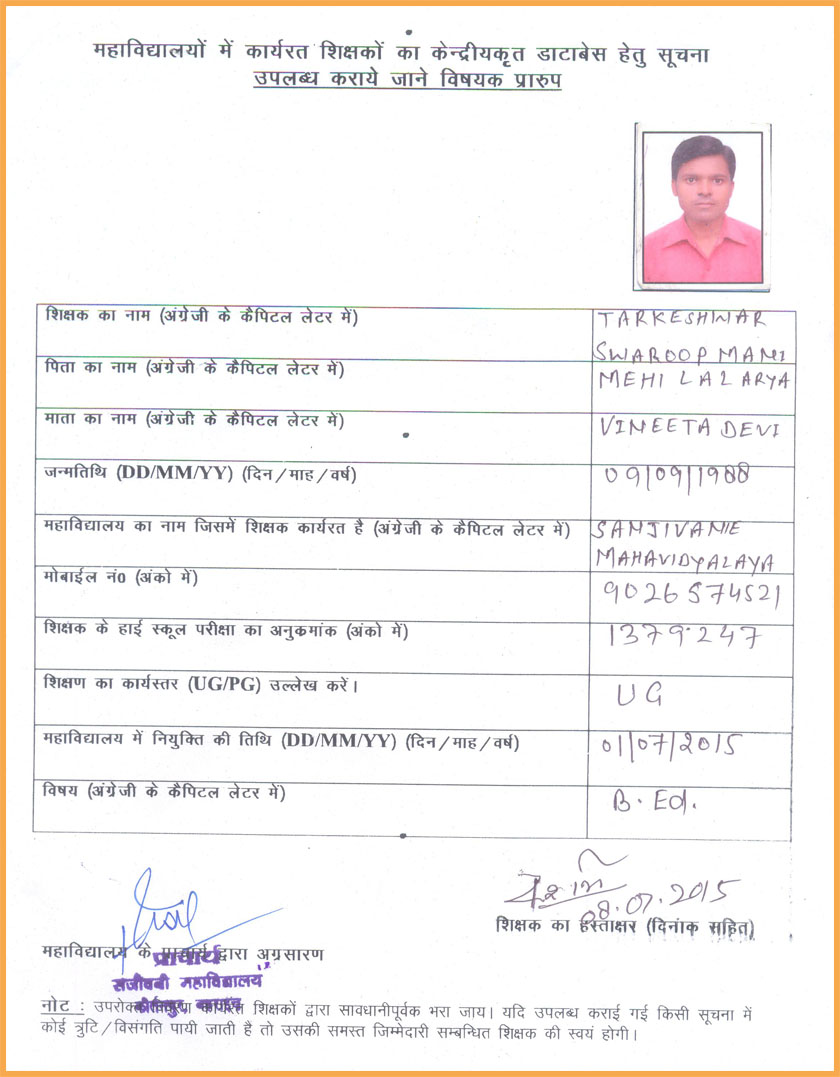 महाविद्यालयों में कार्यरत शिक्षकों का केन्द्रीयकृत डाटाबेस हेतु सूचना
उपलब्ध कराये जाने विषयक प्रारुप
शिक्षक का नाम (अंग्रेजी के कैपिटल लेटर में)
TARKESHWAR
SWAROOP MANI
पिता का नाम (अंग्रेजी के कैपिटल लेटर में)
MEHI LAL ARYA
माता का नाम (अंग्रेजी के कैपिटल लेटर में)
VINEETA DEVI
जन्मतिथि (DD/MM/YY) (दिन/माह/वर्ष)
09/09/1988
महाविद्यालय का नाम जिसमें शिक्षक कार्यरत है (अंग्रेजी के कैपिटल लेटर में)
SANJIVANIE
MAHAVIDYALAYA
मोबाईल नं0 (अंको में)
9026574521
शिक्षक के हाई स्कूल परीक्षा का अनुकमांक (अंको में)
1379247
शिक्षण का कार्यस्तर (UG/PG) उल्लेख करें।
UG
महाविद्यालय में नियुक्ति की तिथि (DD/MM/YY) (दिन/माह/वर्ष)
01/07/2015
विषय (अंग्रेजी के कैपिटल लेटर में)
B.Ed.
08.07.2015
शिक्षक का हस्ताक्षर (दिनांक सहित)
महाविद्यालय के द्वारा अग्रसारण
प्राचार्य
संजीवनी महाविद्यालय
नोट : शिक्षकों द्वारा सावधानीपूर्वक भरा जाय। यदि उपलब्ध कराई गई किसी सूचना में
कोई त्रुटि/विसंगति पायी जाती है तो उसकी समस्त जिम्मेदारी सम्बन्धित शिक्षक की स्वयं होगी।